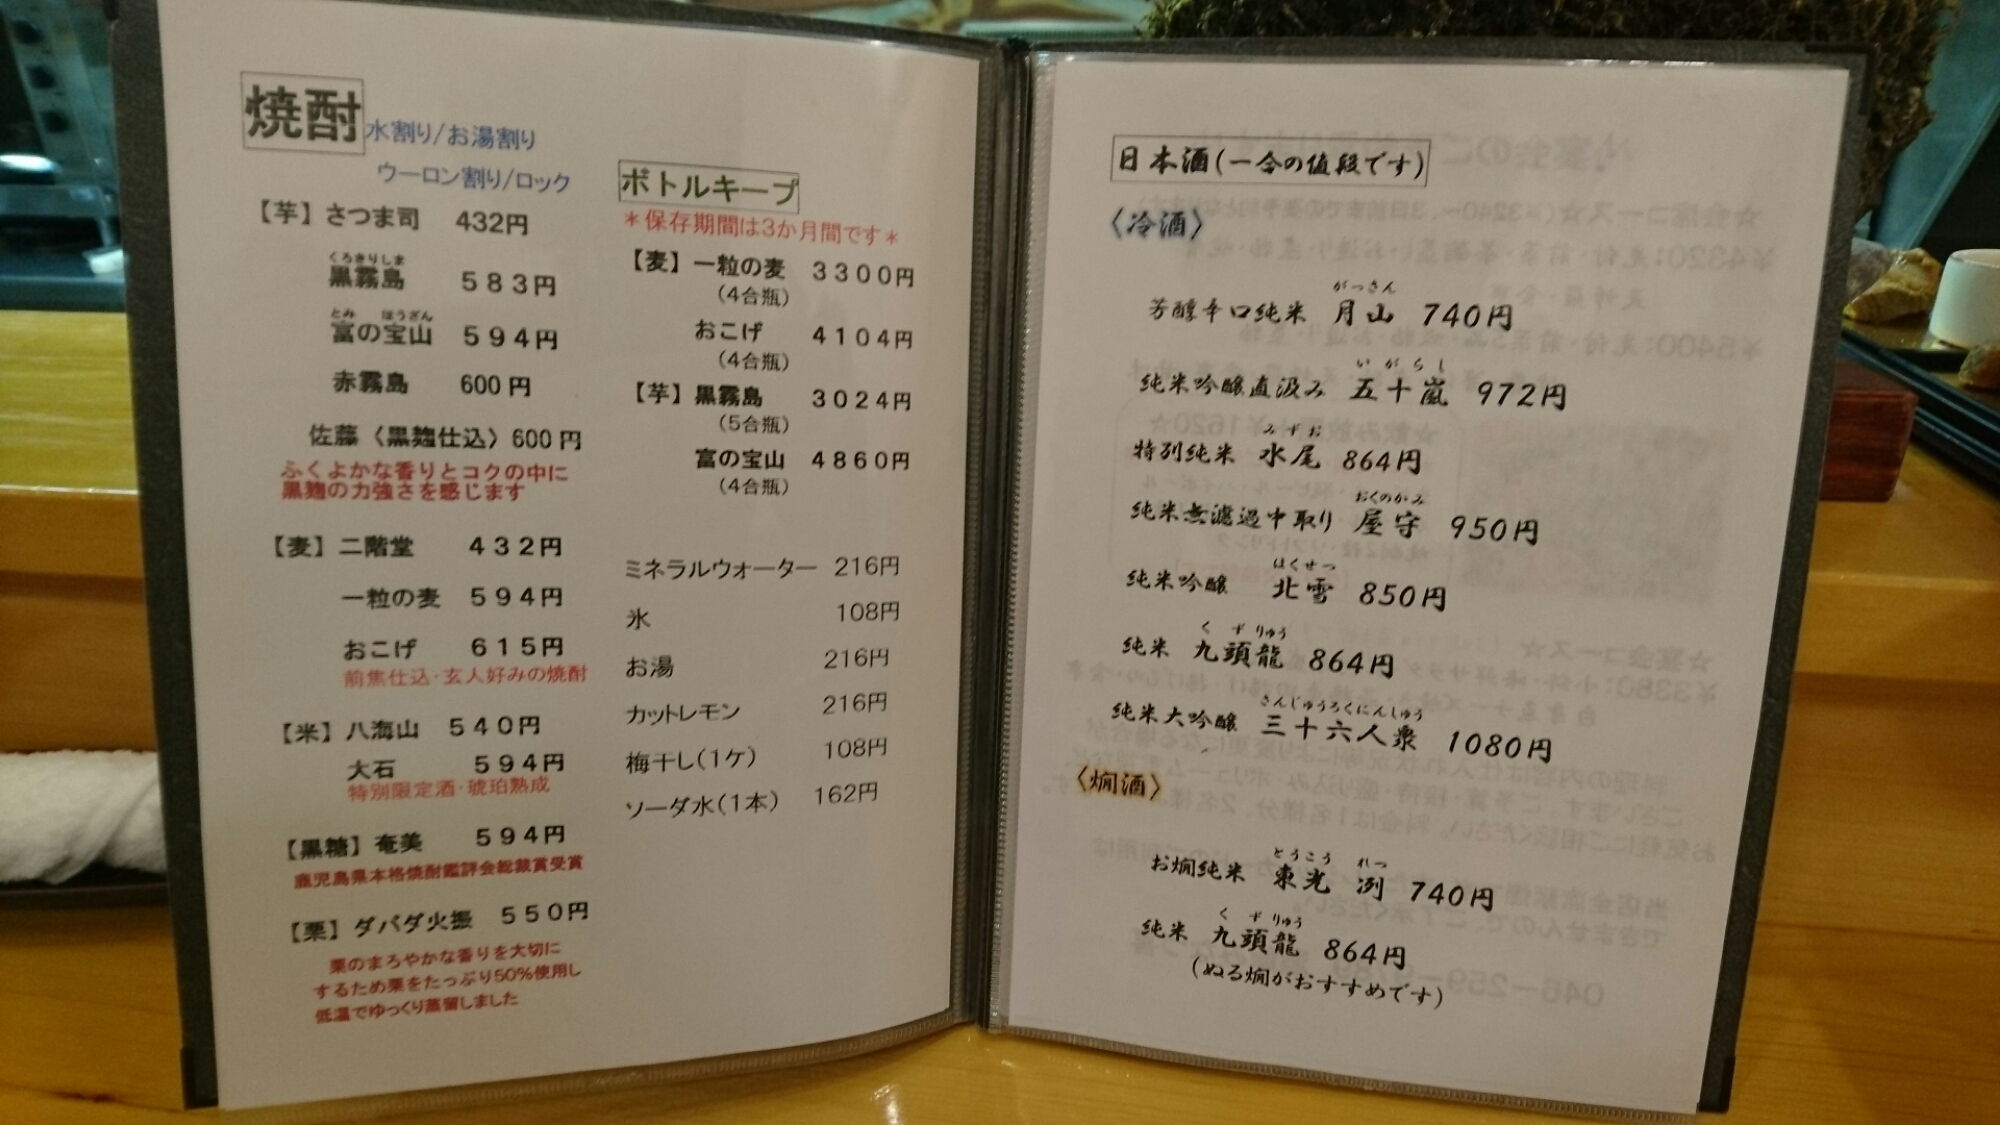 焼酎
水割り/お湯割り
ウーロン割り/ロック
【芋】さつま司 432円
くろきりしま
黒霧島 583円
とみ ほうざん
富の宝山 594円
赤霧島 600円
佐藤〈黒麹仕込〉600円
ふくよかな香りとコクの中に
黒麹の力強さを感じます
【麦】二階堂 432円
一粒の麦 594円
おこげ 615円
前焦仕込・玄人好みの焼酎
【米】八海山 540円
大石 594円
特別限定酒・琥珀熟成
【黒糖】奄美 594円
鹿児島県本格焼酎鑑評会総裁賞受賞
【栗】ダバダ火振 550円
栗のまろやかな香りを大切に
するため栗をたっぷり50%使用し
低温でゆっくり蒸留しました
ボトルキープ
＊保存期間は3か月間です＊
【麦】一粒の麦 3300円
(4合瓶)
おこげ 4104円
(4合瓶)
【芋】黒霧島 3024円
(5合瓶)
富の宝山 4860円
(4合瓶)
ミネラルウォーター 216円
氷 108円
お湯 216円
カットレモン 216円
梅干し(1ケ) 108円
ソーダ水(1本) 162円
日本酒(一合の値段です)
〈冷酒〉
がっさん
芳醇辛口純米 月山 740円
いがらし
純米吟醸直汲み 五十嵐 972円
みずお
特別純米 水尾 864円
おくのかみ
純米無濾過中取り 屋守 950円
ほくせつ
純米吟醸 北雪 850円
くずりゅう
純米 九頭龍 864円
さんじゅうろくにんしゅう
純米大吟醸 三十六人衆 1080円
〈燗酒〉
とうこう れつ
お燗純米 東光 冽 740円
くずりゅう
純米 九頭龍 864円
(ぬる燗がおすすめです)